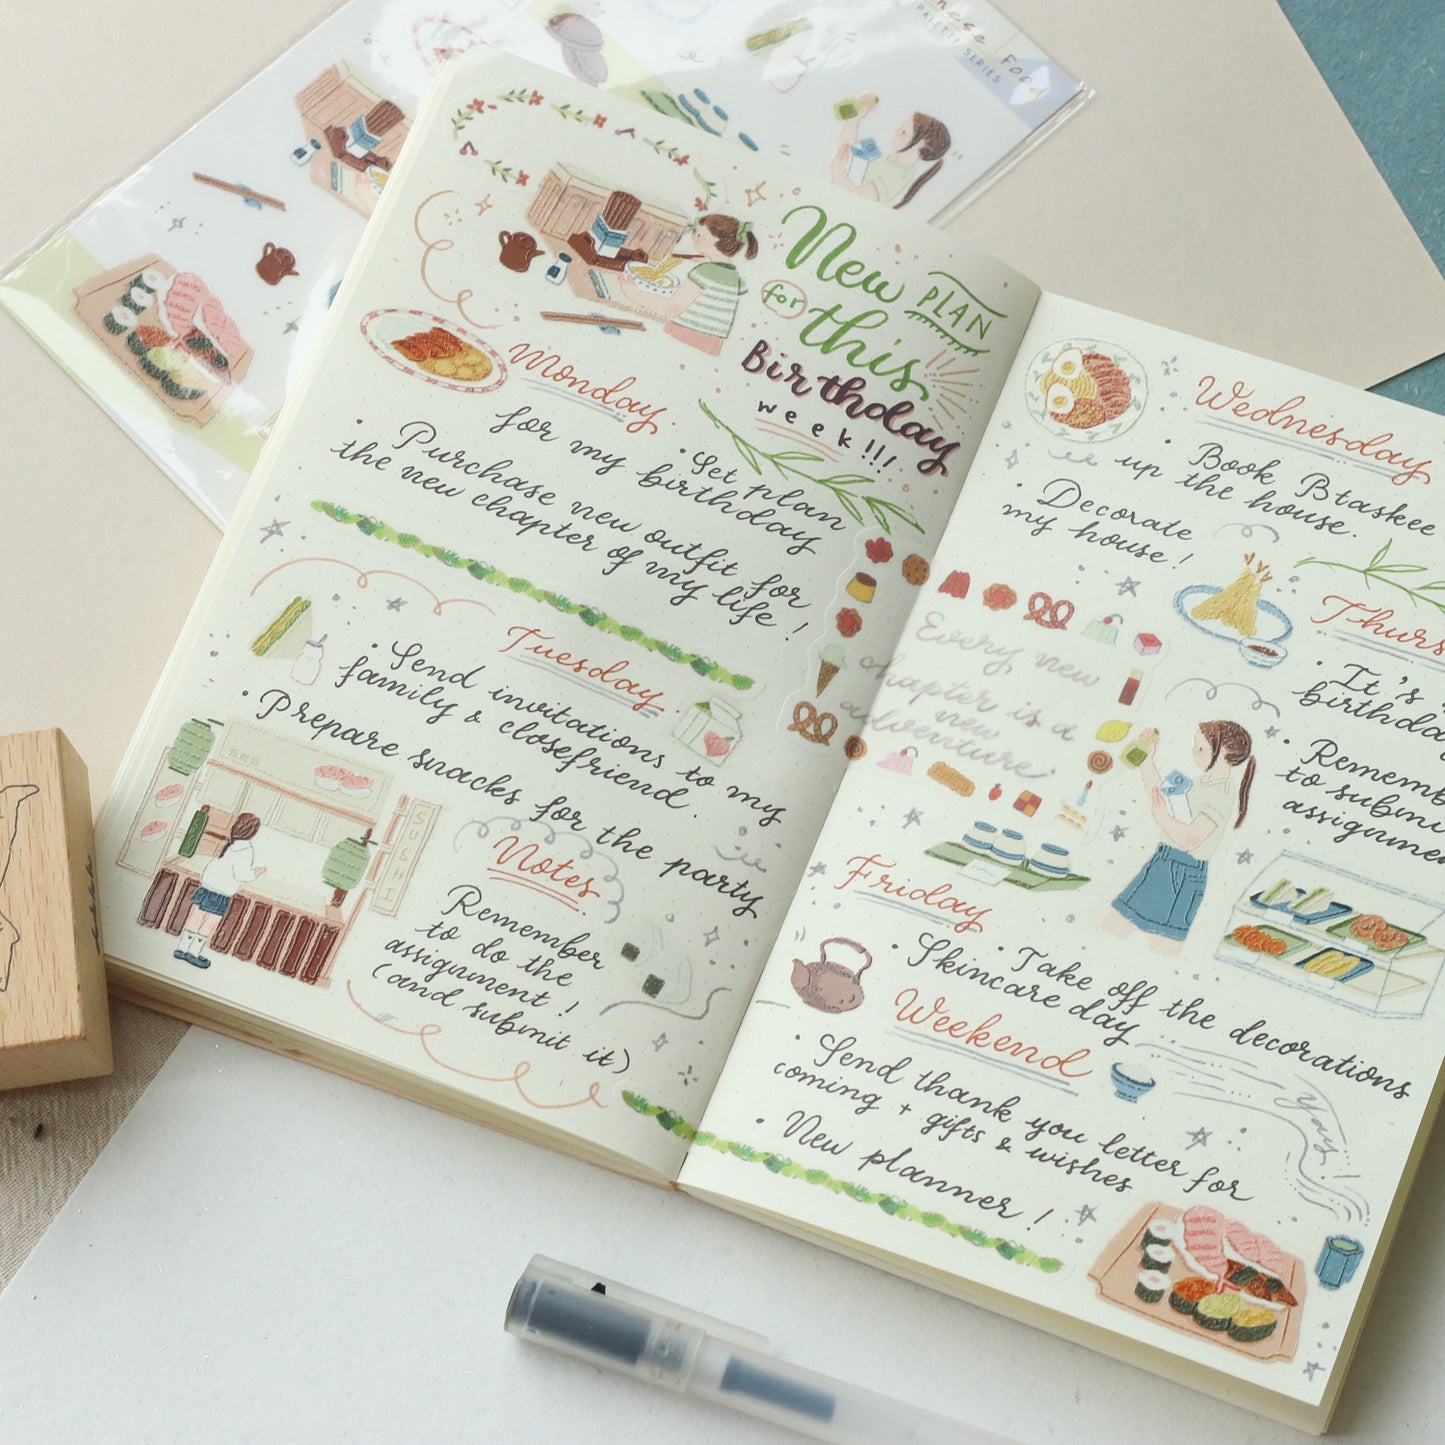 FOOD
PALETTE SERIES
New PLAN
for this
Birthday
week!!!
Monday
• Set plan
for my birthday
• Purchase new outfit for
the new chapter of my life!
Tuesday
• Send invitations to my
family & closefriend.
• Prepare snacks for the party
SUSHI
Notes
Remember
to do the
assignment!
(and submit it)
Wednesday
• Book Btaskee
up the house.
• Decorate
my house!
Every new
chapter is a
new
adventure
Thurs
• It's
birthday
• Rememb
to submi
assignme
Friday
• Take off the decorations
• Skincare day
Weekend
• Send thank you letter for
coming + gifts & wishes
• New planner!
Yays!